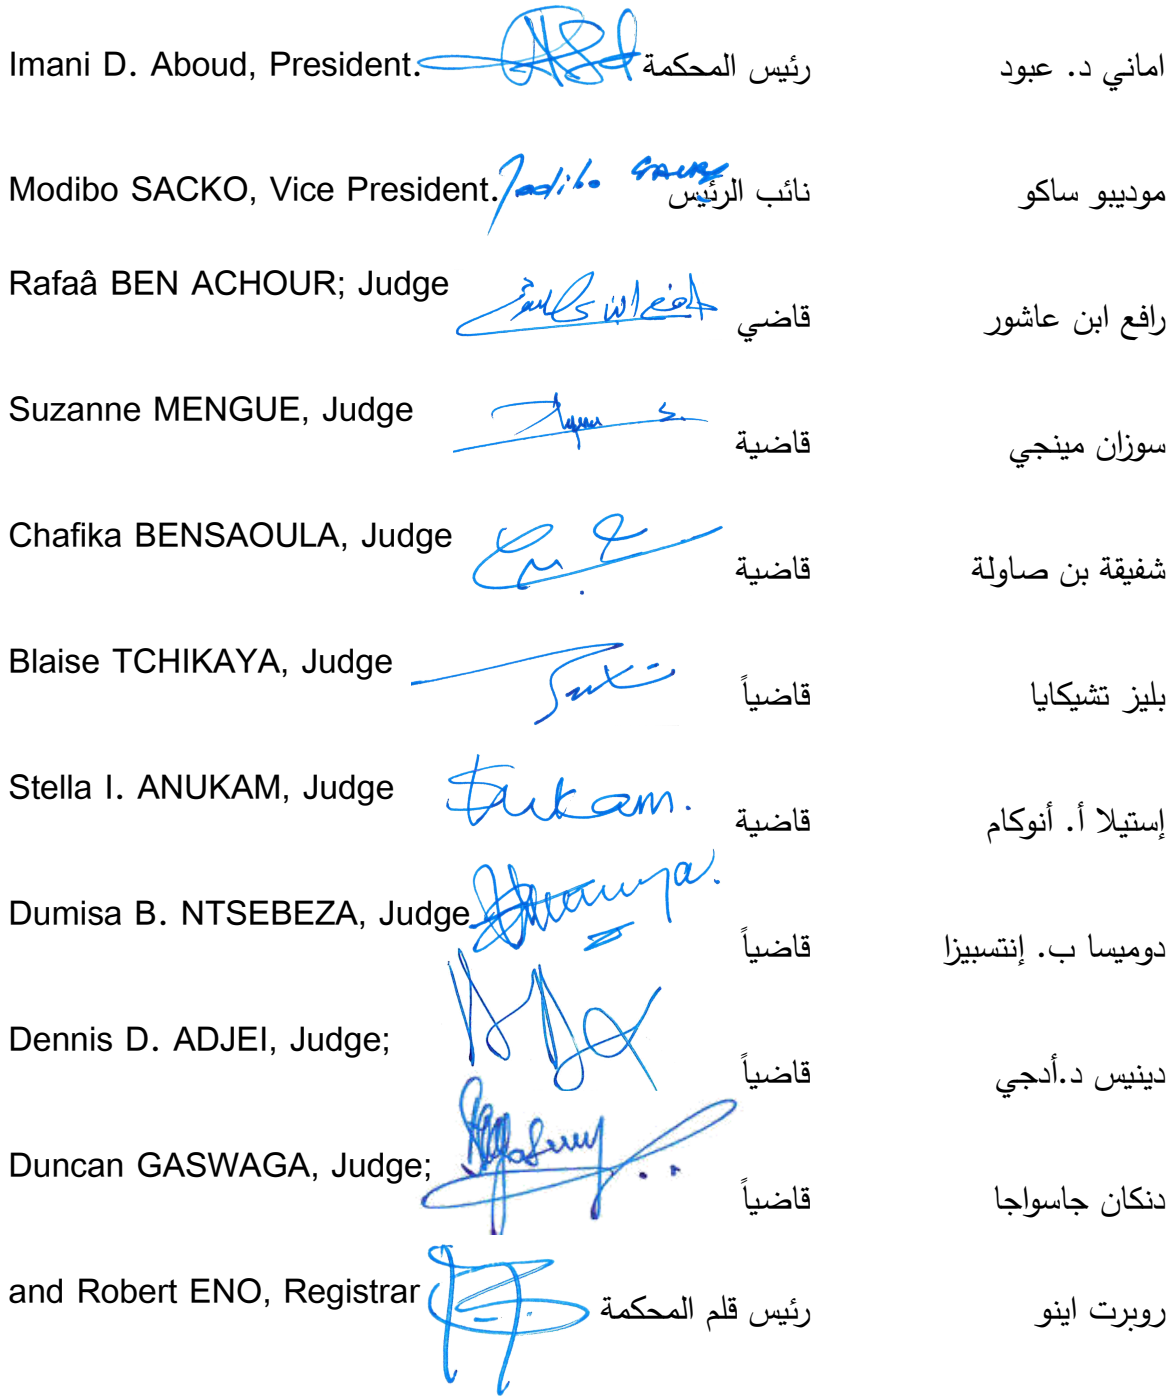 Imani D. Aboud, President. رئيس المحكمة اماني د. عبود
Modibo SACKO, Vice President. Modibo SACKO نائب الرئيس موديبو ساكو
Rafaâ BEN ACHOUR; Judge قاضي رافع ابن عاشور
Suzanne MENGUE, Judge قاضية سوزان مينجي
Chafika BENSAOULA, Judge قاضية شفيقة بن صاولة
Blaise TCHIKAYA, Judge قاضياً بليز تشيكايا
Stella I. ANUKAM, Judge قاضية إستيلا أ. أنوكام
Dumisa B. NTSEBEZA, Judge قاضياً دوميسا ب. إنتسبيزا
Dennis D. ADJEI, Judge; قاضياً دينيس د.أدجي
Duncan GASWAGA, Judge; قاضياً دنكان جاسواجا
and Robert ENO, Registrar رئيس قلم المحكمة روبرت اينو